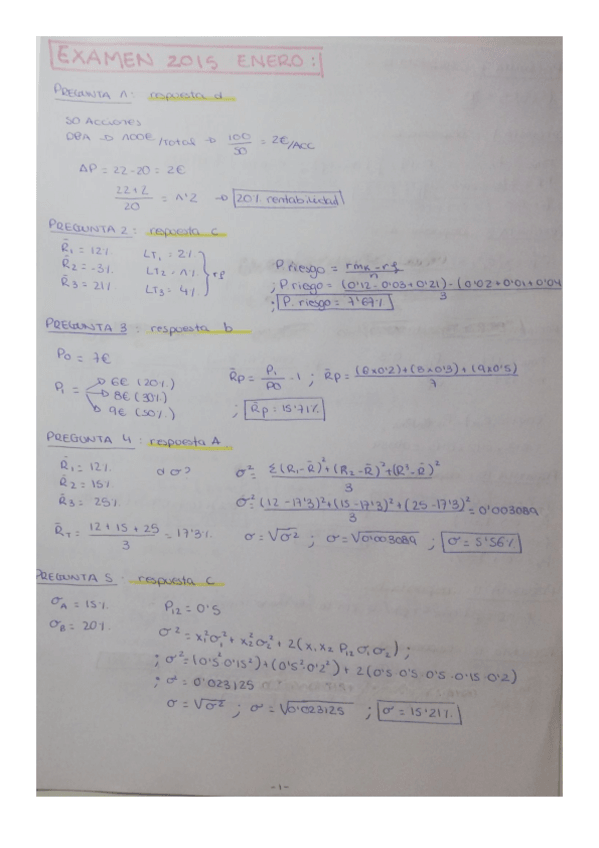 EXAMEN 2015 ENERO:
PREGUNTA 1: respuesta d
50 ACCIONES
DPA → 100€/TOTAL → 100/50 = 2€/ACC
ΔP = 22-20 = 2€
22+2/20 = 1'2 → 20% rentabilidad
PREGUNTA 2: respuesta c
R̄1 = 12% LT1 : 2%
R̄2 = -3% LT2 = 1% rf
R̄3 = 21% LT3 = 4%
P riesgo = rmk - rf/n
; P riego = (0'12 - 0'03 + 0'21) - (0'02 + 0'01 + 0'04/3
; P. riesgo = 7'67%
PREGUNTA 3: respuesta b
P0 = 7€
P1 = 6€ (20%)
8€ (30%)
9€ (50%)
R̄p = P1/P0 - 1 ; R̄p = (6x0'2)+(8x0'3)+(9x0'5)/7
; R̄p = 15'71%
PREGUNTA 4: respuesta A
R̄1 = 12% d σ?
R̄2 = 15%
R̄3 = 25%
R̄T = 12 + 15 + 25/3 = 17'3%
σ² = Σ(R1-R̄)²+(R2-R̄)²+(R³-R̄)²/3
σ² = (12-17'3)²+(15-17'3)²+(25-17'3)²/3 = 0'003089
σ = √σ² ; σ = √0'003089 ; σ = 5'56%
PREGUNTA 5: respuesta c
σA = 15% P12 = 0'5
σB = 20%
σ² = x1²σ1² + x2²σ2² + 2(x1 x2 P12 σ1 σ2) ;
; σ² = (0'5²·0'15²) + (0'5²·0'2²) + 2(0'5·0'5·0'5·0'15·0'2)
; σ² = 0'023125
σ = √σ² ; σ = √0'023125 ; σ = 15'21%
-1-